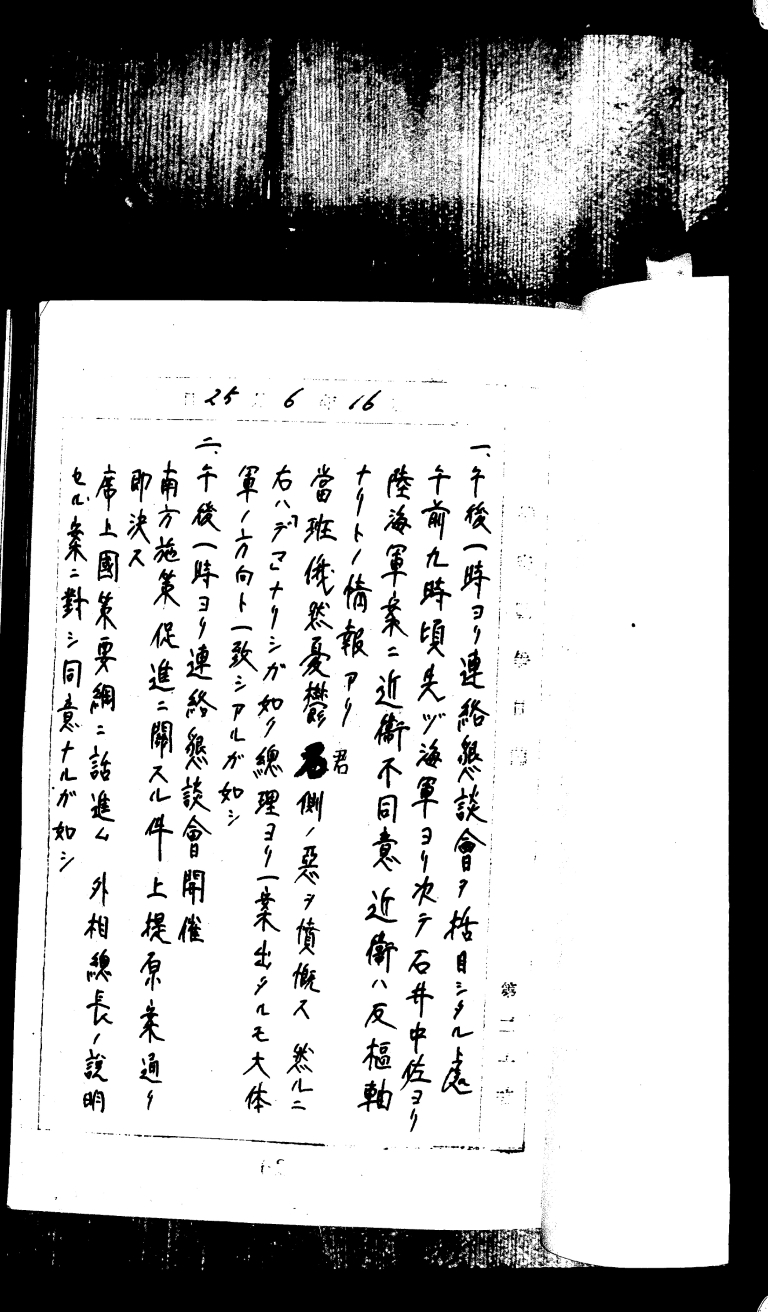 16 年 6 月 25 日
一、午後一時ヨリ連絡懇談會ヲ括目シタル處
午前九時頃先ヅ海軍ヨリ次テ石井中佐ヨリ
陸海軍案ニ近衞不同意近衞ハ反樞軸
ナリトノ情報アリ
當班俄然憂欝君側ノ惡ヲ憤慨ス然ルニ
右ハ「デマ」ナリシガ如ク總理ヨリ一案出タルモ大体
軍ノ方向ト一致シアルガ如シ
二、午後一時ヨリ連絡懇談會開催
南方施策促進ニ關スル件上提原案通リ
即決ス
席上國策要綱ニ話進ム外相總長ノ說明
セル案ニ對シ同意ナルガ如シ
第二十班